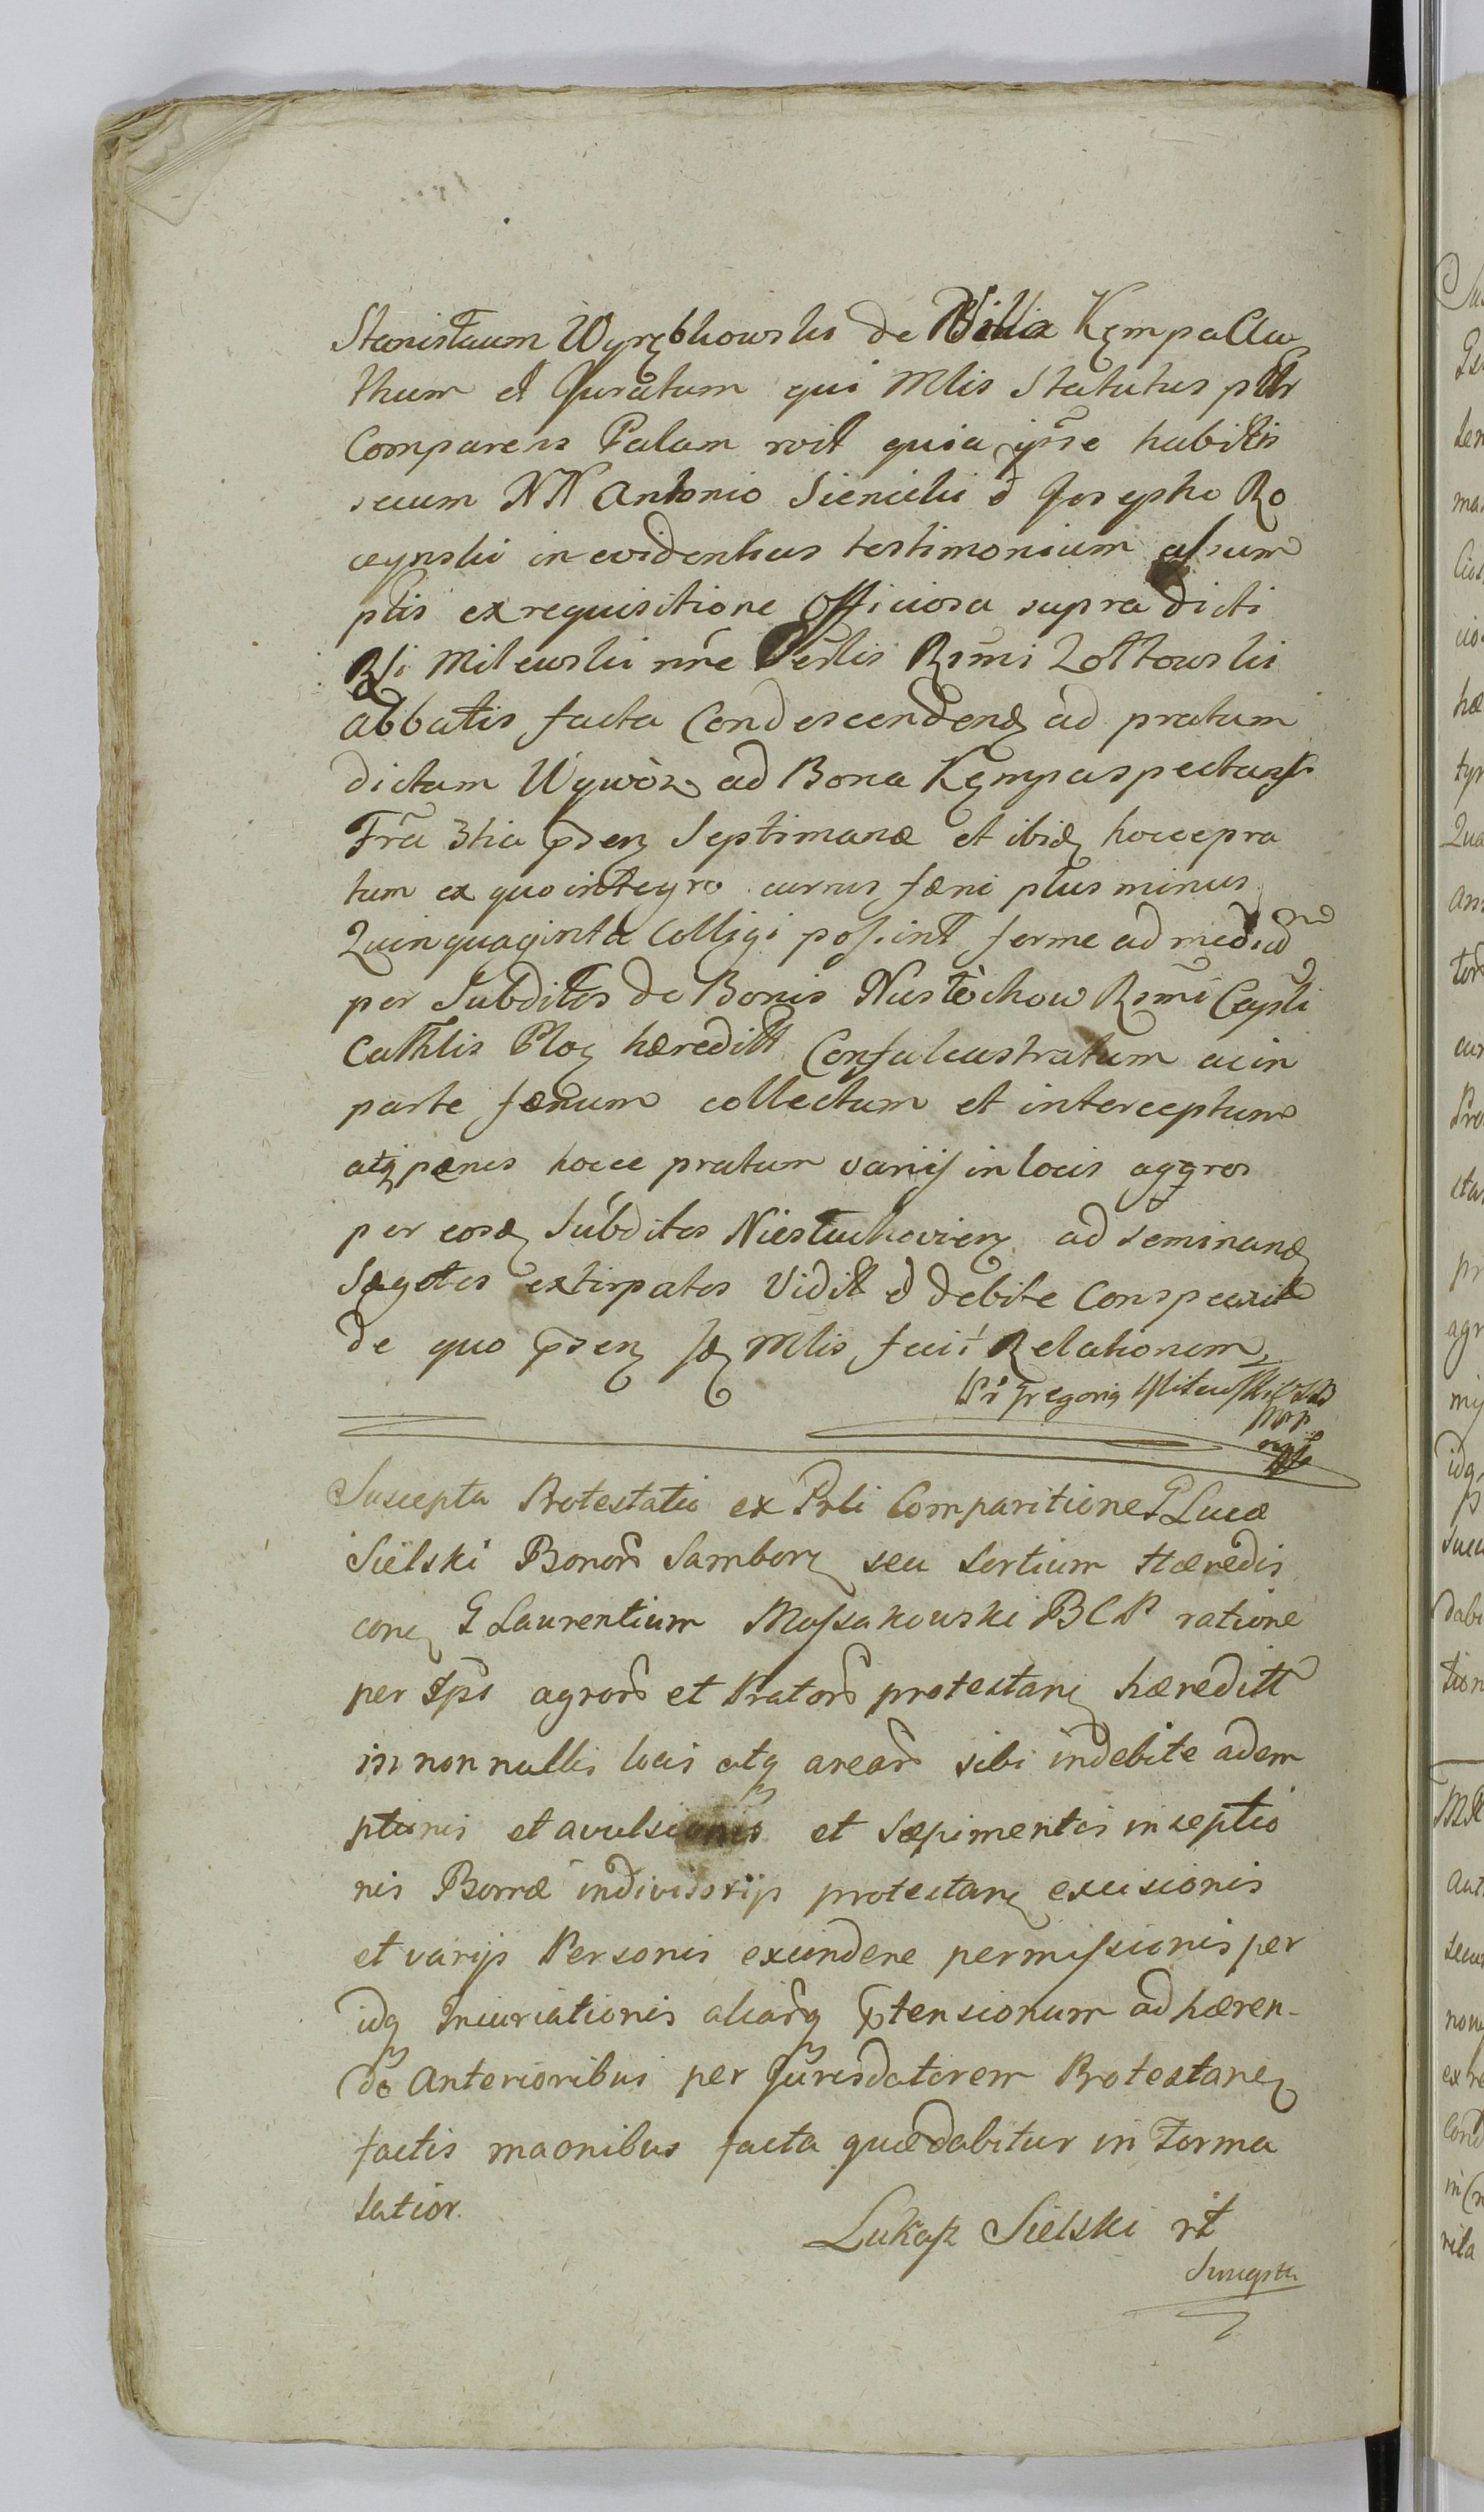 Stanislaum Wyrębkowski de Villa Kęmpa Clu
thum et Juratum qui Mlis Statutus pltr
Comparens Palam rvit quia ipse habitis
secum NN Antonio Sienicki et Josepho Ro
ceynski in evidentius testimonium assum
ptis ex requisitione Officiosa supra dicti
Rsi Milewski nne Perlis Rsmi Zołtowski
abbatis facta Condescendens ad pratum
dictum Wywòz ad Bona Kęmpa spectans
Fria 3tia psen Septimanæ et ibid hocce pra
tum ex quo integro currus fæni plus minus
Quinquaginta Colligi possint ferme ad medium
per Subditos de Bonis Niestòchow Rsmi Capsli
Cathlis Ploc hæreditt Confalcastratum ac in
parte fænum collectum et interceptum
atq pænes hocce pratum varijs in locis aggros
per eosd Subditos Niestuchovien ad seminand
Sægetes extirpatos Vidit et debite Conspexit
de quo psen sd Mlis fecit Relationem
Gregorius Milewski
Suscepta Protestatio ex Prli Comparitione G Lucæ
Sielski Bonorum Sambory seu Sortium Hæredis
con G Laurentium Mossakowski BCP ratione
per Ipsi agrorum et Pratorum protestan hæreditt
in non nullis locis atq arearum sibi indebite adem
ptionis et avulsionis et Sæpimentis inseptio
nis Borræ indivisorijs protestan excisionis
et varijs Personis excindere permissionis per
idq Iniuriationis aliarq ptensionum ad hæren-
do Anterioribus per Jurisdatorem Protestane
factis maonibus facta quæ dabitur in Forma
latior.
Łukasz Sielski rt
Suscepta